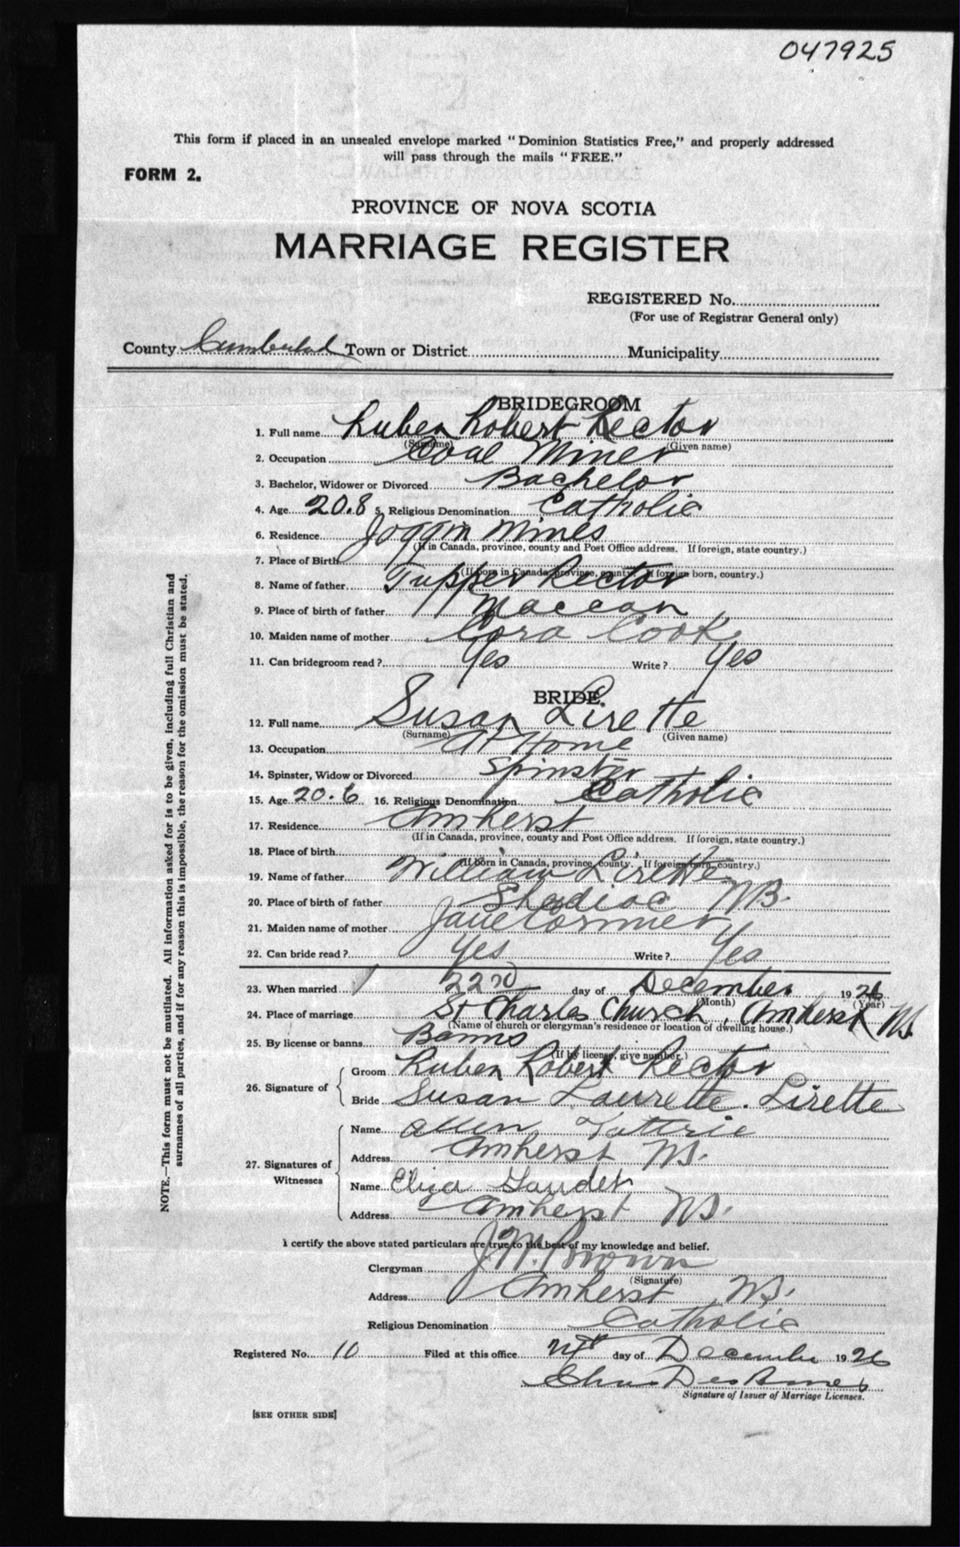 047925
This form if placed in an unsealed envelope marked "Dominion Statistics Free," and properly addressed
will pass through the mails "FREE."
FORM 2.
PROVINCE OF NOVA SCOTIA
MARRIAGE REGISTER
REGISTERED No.
(For use of Registrar General only)
County Cumberland Town or District Municipality
BRIDEGROOM
1. Full name Ruben Robert Rector
(Surname) (Given name)
2. Occupation Coal Miner
3. Bachelor, Widower or Divorced Bachelor
4. Age 20.8 5. Religious Denomination Catholic
6. Residence Joggin Mines
(If in Canada, province, county and Post Office address. If foreign, state country.)
7. Place of Birth
(If born in Canada, province, county. If foreign born, country.)
8. Name of father Tupper Rector
9. Place of birth of father Maccan
10. Maiden name of mother Cora Cook
11. Can bridegroom read? Yes Write? Yes
BRIDE.
12. Full name Susan Lirette
(Surname) (Given name)
13. Occupation At Home
14. Spinster, Widow or Divorced Spinster
15. Age 20.6 16. Religious Denomination Catholic
17. Residence Amherst
(If in Canada, province, county and Post Office address. If foreign, state country.)
18. Place of birth
(If born in Canada, province, county. If foreign born, country.)
19. Name of father William Lirette
20. Place of birth of father Shediac NB.
21. Maiden name of mother Jane Cormier
22. Can bride read? Yes Write? Yes
23. When married 22nd day of December 1926
(Month) (Year)
24. Place of marriage St Charles Church, Amherst NS
(Name of church or clergyman's residence or location of dwelling house.)
25. By license or banns Banns
(If by license, give number.)
26. Signature of Groom Ruben Robert Rector
Bride Susan Laurrette. Lirette
27. Signatures of Witnesses Name Allen Tattrie
Address Amherst NS.
Name Eliza Gaudet
Address Amherst NS.
I certify the above stated particulars are true to the best of my knowledge and belief.
Clergyman J. W. Brown
(Signature)
Address Amherst NS.
Religious Denomination Catholic
Registered No. 10 Filed at this office day of December 1926
Chas Des Barres
Signature of Issuer of Marriage Licenses.
[SEE OTHER SIDE]
NOTE.—This form must not be mutilated. All information asked for is to be given, including full Christian and
surnames of all parties, and if for any reason this is impossible, the reason for the omission must be stated.